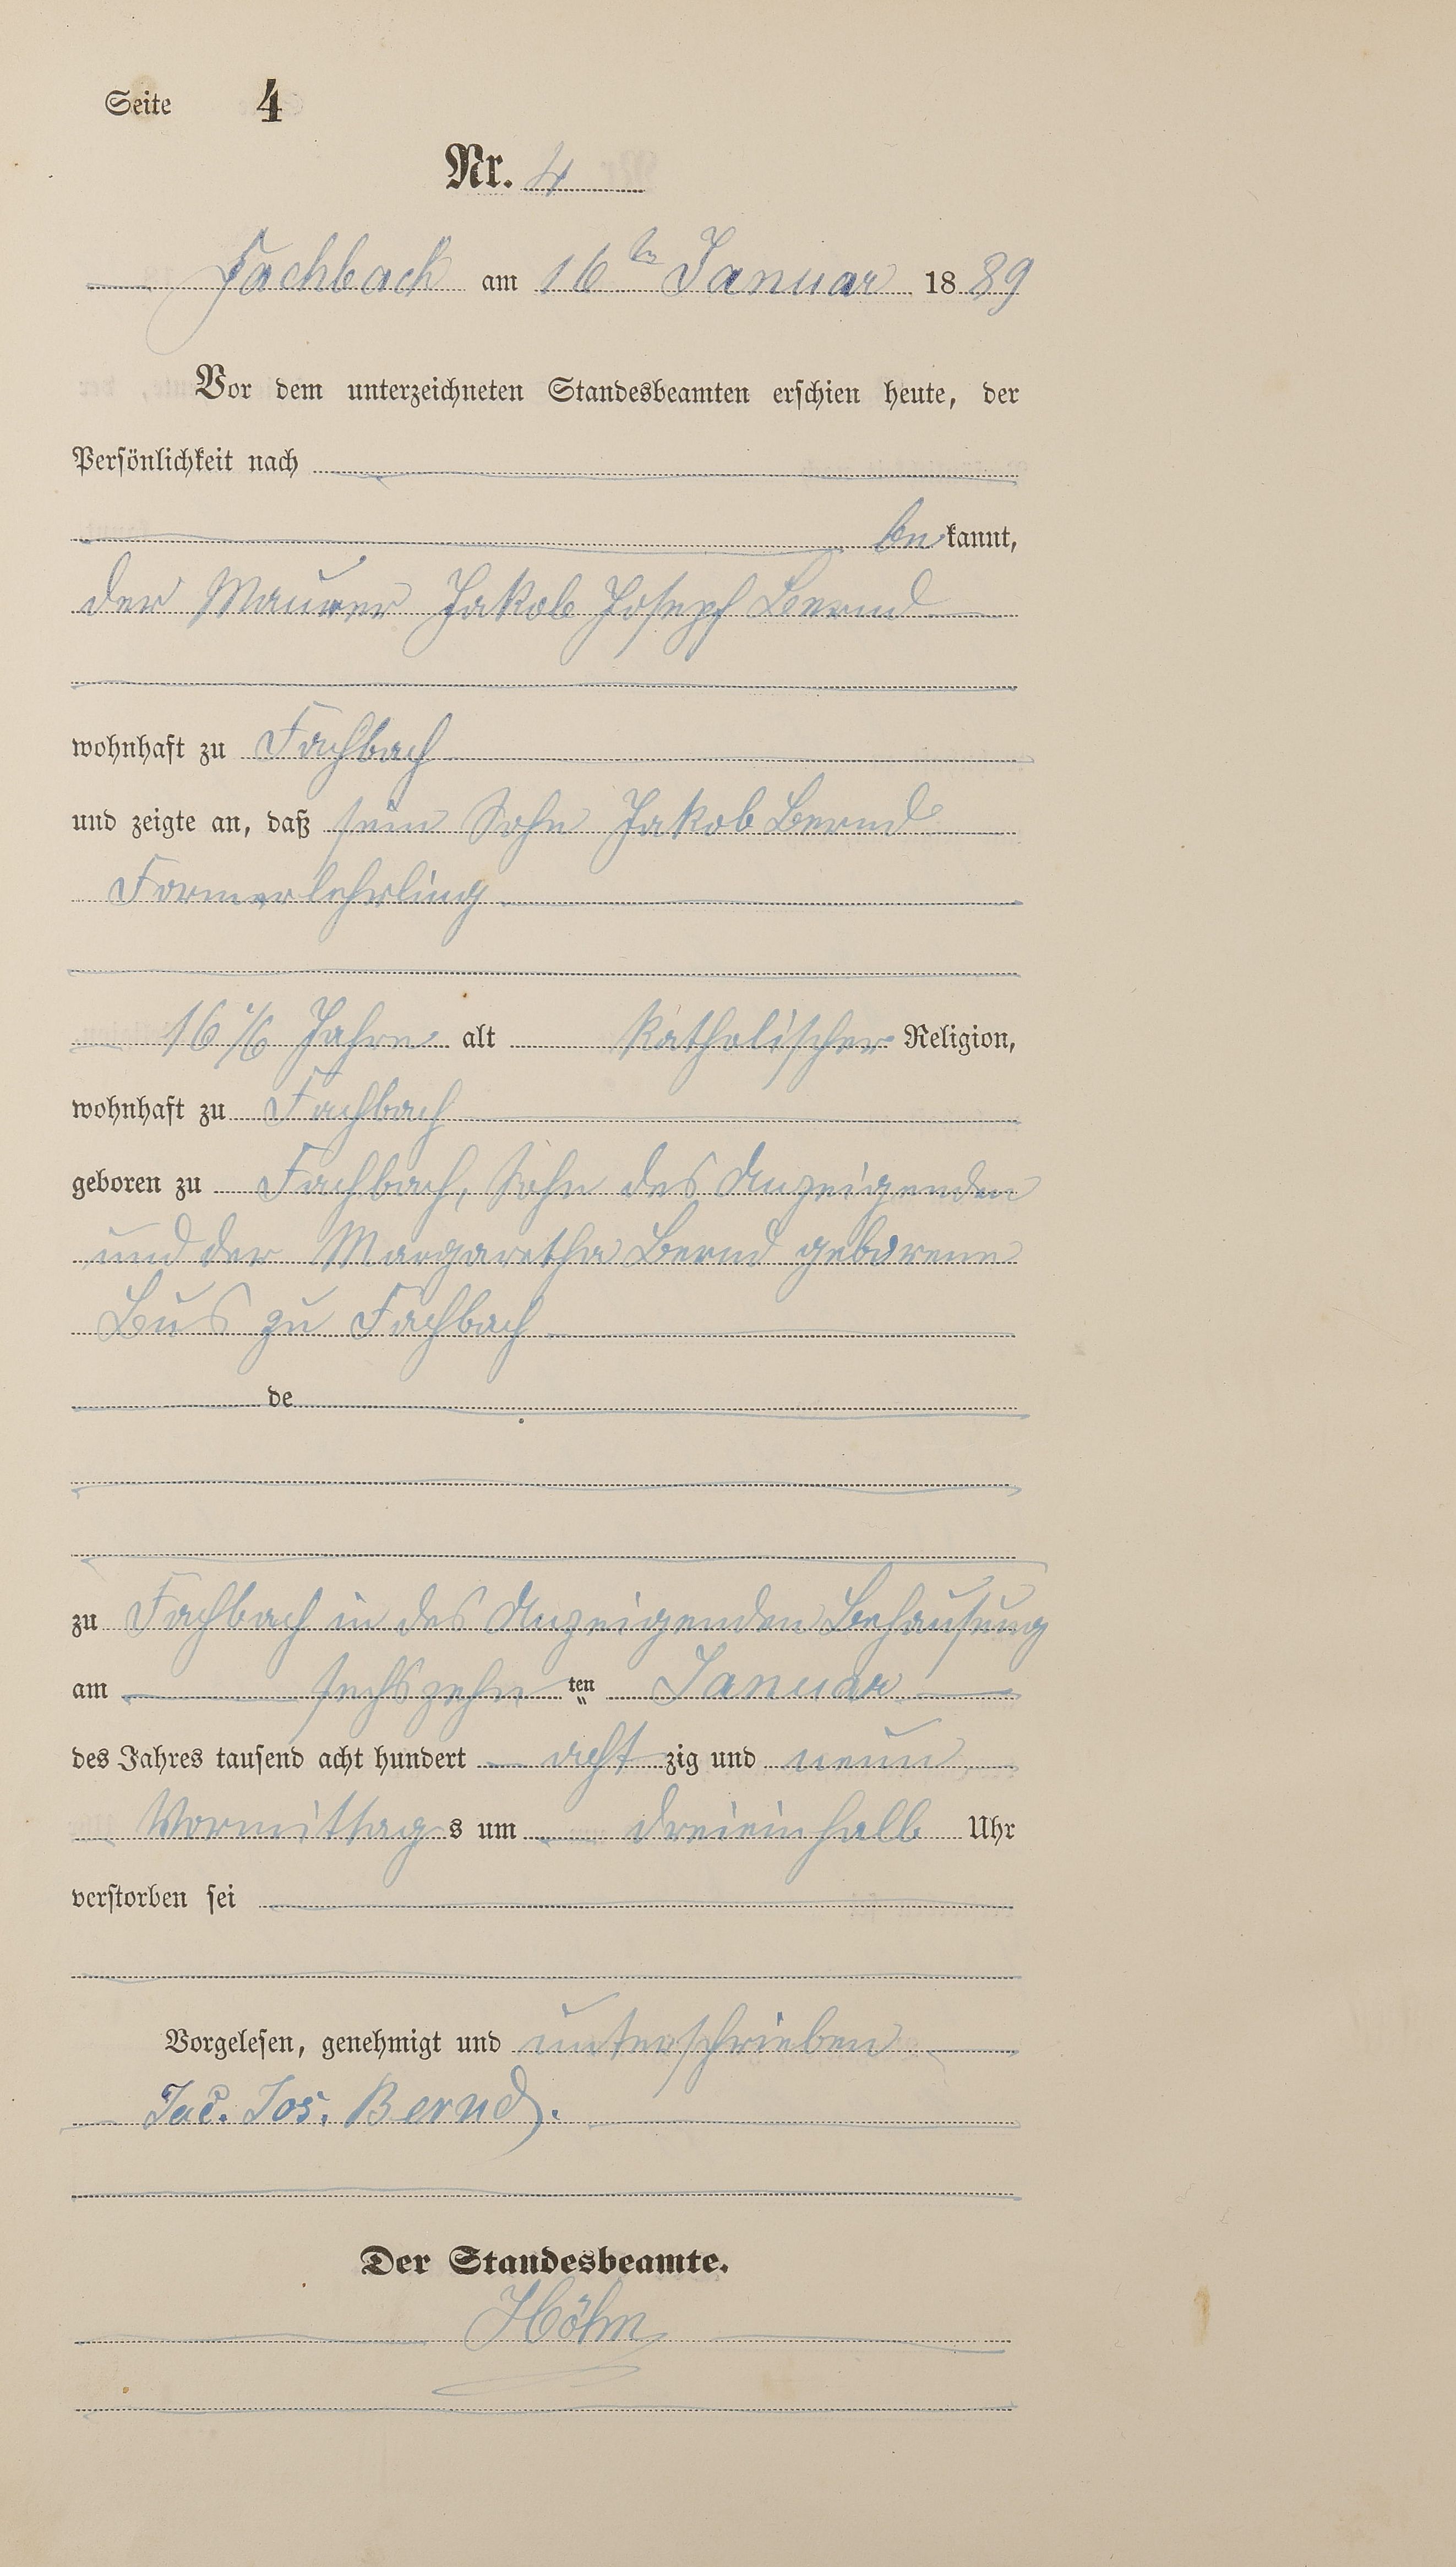 Seite 4
Nr. 4
Fachbach am 16ten Januar 1889
Vor dem unterzeichneten Standesbeamten erschien heute, der
Persönlichkeit nach
be kannt,
der Maurer Jakob Joseph Bernd
wohnhaft zu Fachbach
und zeigte an, daß sein Sohn Jakob Bernd
Formerlehrling
16 1/6 Jahre alt katholischer Religion,
wohnhaft zu Fachbach
geboren zu Fachbach, Sohn des Anzeigenden
und der Margaretha Bernd geborene
Bus zu Fachbach
de
zu Fachbach in des Anzeigenden Behausung
am sechszehn ten Januar
des Jahres tausend acht hundert acht zig und neun
Vormittag s um dreieinhalb Uhr
verstorben sei
Vorgelesen, genehmigt und unterschrieben
Jac. Jos. Bernd.
Der Standesbeamte.
Höhn